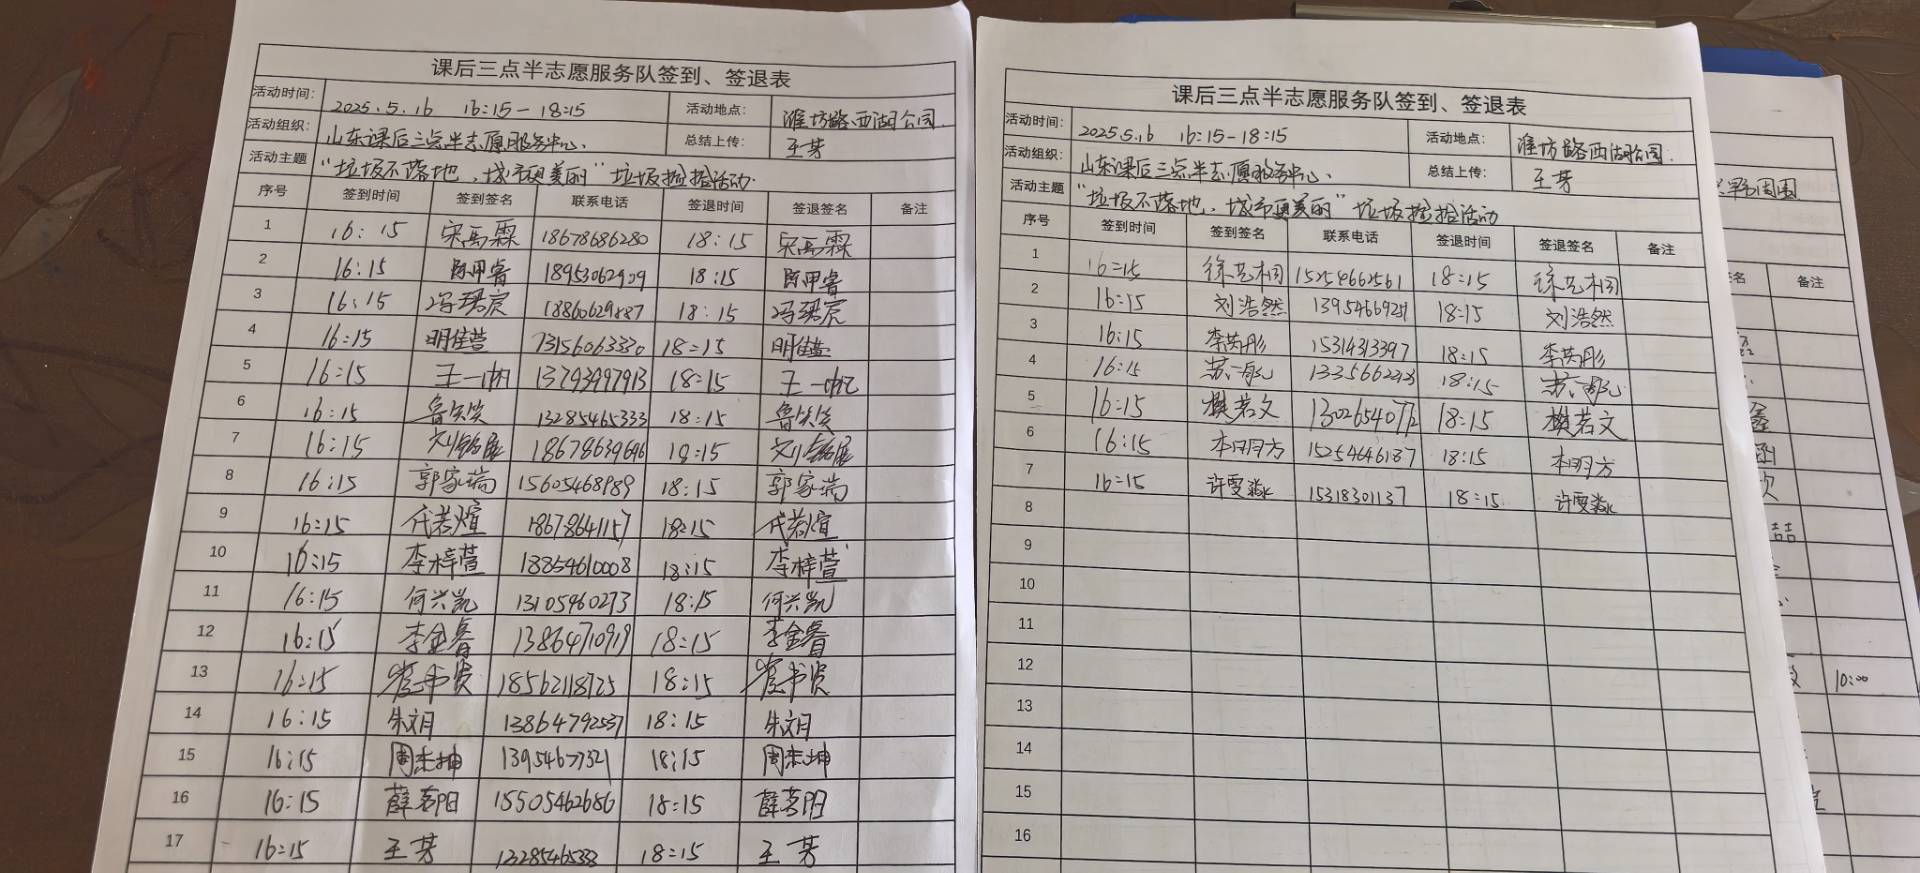 课后三点半志愿服务队签到、签退表
活动时间: 2025.5.16 16:15-18:15 活动地点: 潍坊路西湖公园
活动组织: 山东课后三点半志愿服务中心. 总结上传: 王芳
活动主题 "垃圾不落地、城市更美丽"垃圾捡拾活动.
序号 签到时间 签到签名 联系电话 签退时间 签退签名 备注
1 16:15 宋禹霖 18678686280 18:15 宋禹霖
2 16:15 陈甲睿 18953062909 18:15 陈甲睿
3 16:15 冯珺宸 18860629887 18:15 冯珺宸
4 16:15 明佳萱 18:15 明佳萱
5 16:15 王一帆 13793997913 18:15 王一帆
6 16:15 鲁笑笑 13285465333 18:15 鲁笑笑
7 16:15 18678639696 18:15
8 16:15 郭家端 15605468989 18:15 郭家端
9 16:15 代若煊 18678641157 18:15 代若煊
10 16:15 李梓萱 18854610008 18:15 李梓萱
11 16:15 何兴凯 13105460273 18:15 何兴凯
12 16:15 李金睿 13864710919 18:15 李金睿
13 16:15 18562118725 18:15
14 16:15 朱文月 13864792537 18:15 朱文月
15 16:15 13954677321 18:15
16 16:15 薛茗阳 15505462686 18:15 薛茗阳
17 16:15 王芳 18:15 王芳
课后三点半志愿服务队签到、签退表
活动时间: 2025.5.16 16:15-18:15 活动地点: 潍坊路西湖公园.
活动组织: 山东课后三点半志愿服务中心. 总结上传: 王芳
活动主题 "垃圾不落地、城市更美丽"垃圾捡拾活动
序号 签到时间 签到签名 联系电话 签退时间 签退签名 备注
1 16:15 徐艺桐 15254662561 18:15 徐艺桐
2 16:15 刘浩然 18:15 刘浩然
3 16:15 李芮彤 15314313397 18:15 李芮彤
4 16:15 18:15
5 16:15 樊若文 13026540772 18:15 樊若文
6 16:15 15254646187 18:15
7 16:15 许雯淼 15318301137 18:15 许雯淼
8
9
10
11
12
13
14
15
16
周围
名 备注
鑫
喆
10:00